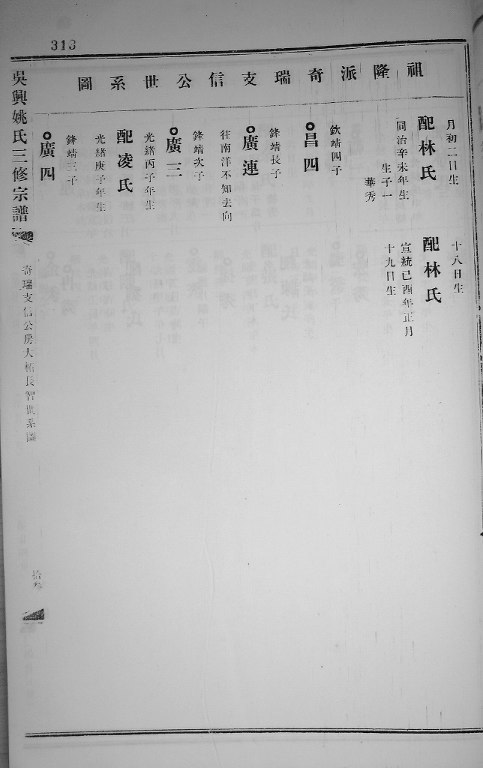 313
祖隆派奇瑞支信公世系圖
月初二日生
配林氏
同治辛未年生
生子一
華秀
十八日生
配林氏
宣統己酉年正月
十九日生
昌四
欽靖四子
廣連
鋒靖長子
往南洋不知去向
廣三
鋒靖次子
光緒丙子年生
配凌氏
光緒庚子年生
廣四
鋒靖三子
吳興姚氏三修宗譜
奇瑞支信公房大楠長智世系圖